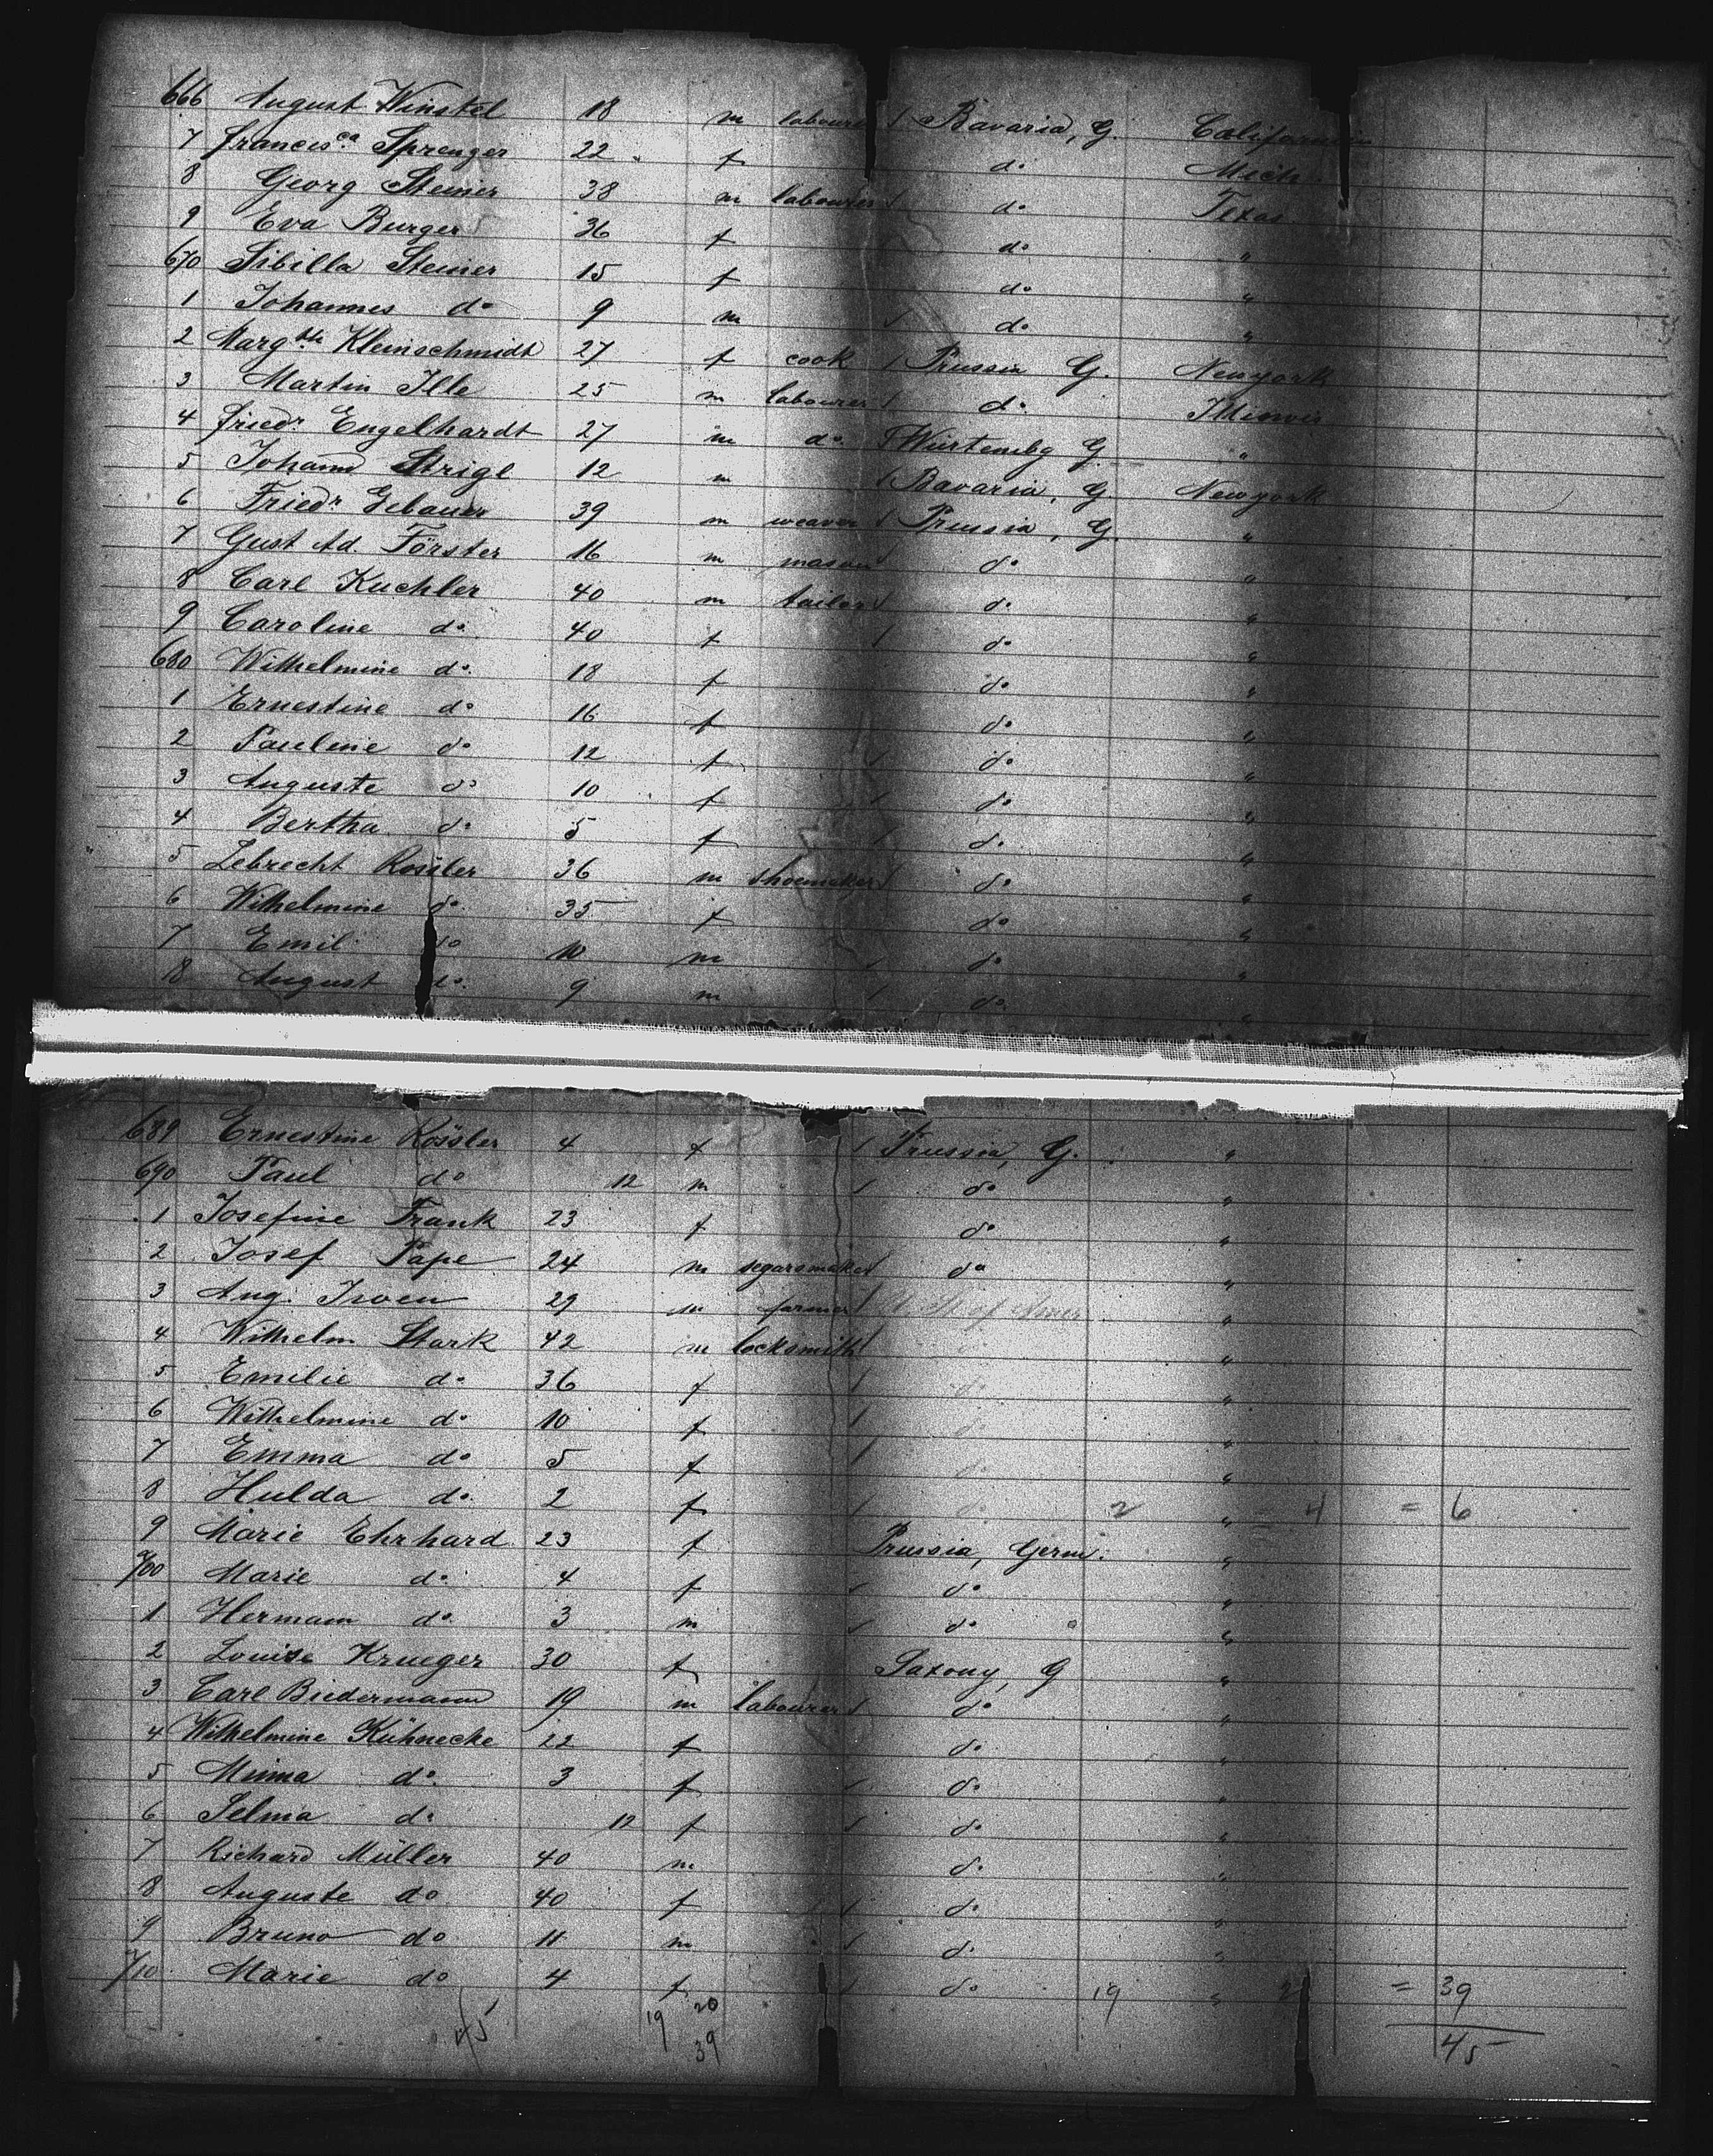 666 August Winstel 18 m labourer / Bavaria, G. California
7 Francisca Sprenger 22 f do Mich.
8 Georg Steiner 38 m labourer / do Texas
9 Eva Burger 36 f do "
670 Sibilla Steiner 15 f do "
1 Johannes do 9 m / do "
2 Margthe Kleinschmidt 27 f cook / Prussia G. Newyork
3 Martin Ille 25 m labourer / do Illinois
4 Friedr. Engelhardt 27 m do. / Würtembg G. "
5 Johann Strigl 12 m / Bavaria, G. Newyork
6 Friedr Gebauer 39 m weaver / Prussia, G. "
7 Gust Ad. Förster 16 m mason / do "
8 Carl Kuchler 40 m tailor / do "
9 Caroline do 40 f / do "
680 Wilhelmine do. 18 f do "
1 Ernestine do 16 f do "
2 Pauline do 12 f / do "
3 Auguste do 10 f / do "
4 Bertha do 5 f / do "
5 Lebrecht Rossler 36 m shoemaker / do "
6 Wilhelmine do. 35 f do "
7 Emil do 10 m / do "
8 August do. 9 m / do "
689 Ernestine Rössler 4 f / Prussia, G. "
690 Paul do 12 m / do "
1 Josefine Frank 23 f do "
2 Josef Pape 24 m segarsmaker / do "
3 Aug. 29 m farmer / U. St. of Amer. "
4 Wilhelm Stark 42 m locksmith / do "
5 Emilie do 36 f / do "
6 Wilhelmine do 10 f / do "
7 Emma do 5 f / do "
8 Hulda do. 2 f / do 2 " = 4 = 6
9 Marie Ehrhard 23 f Prussia, Germ. "
700 Marie do. 4 f / do "
1 Hermann do. 3 m / do "
2 Louise Krueger 30 f Saxony, G "
3 Carl Biedermann 19 m labourer / do "
4 Wilhelmine Kühnecke 22 f do "
5 Minna do. 3 f / do "
6 Selma do 12 f / do "
7 Richard Müller 40 m do "
8 Auguste do 40 f / do "
9 Bruno do 11 m / do "
710 Marie do 4 f / do 19 " = 39
45 19 20 45
39